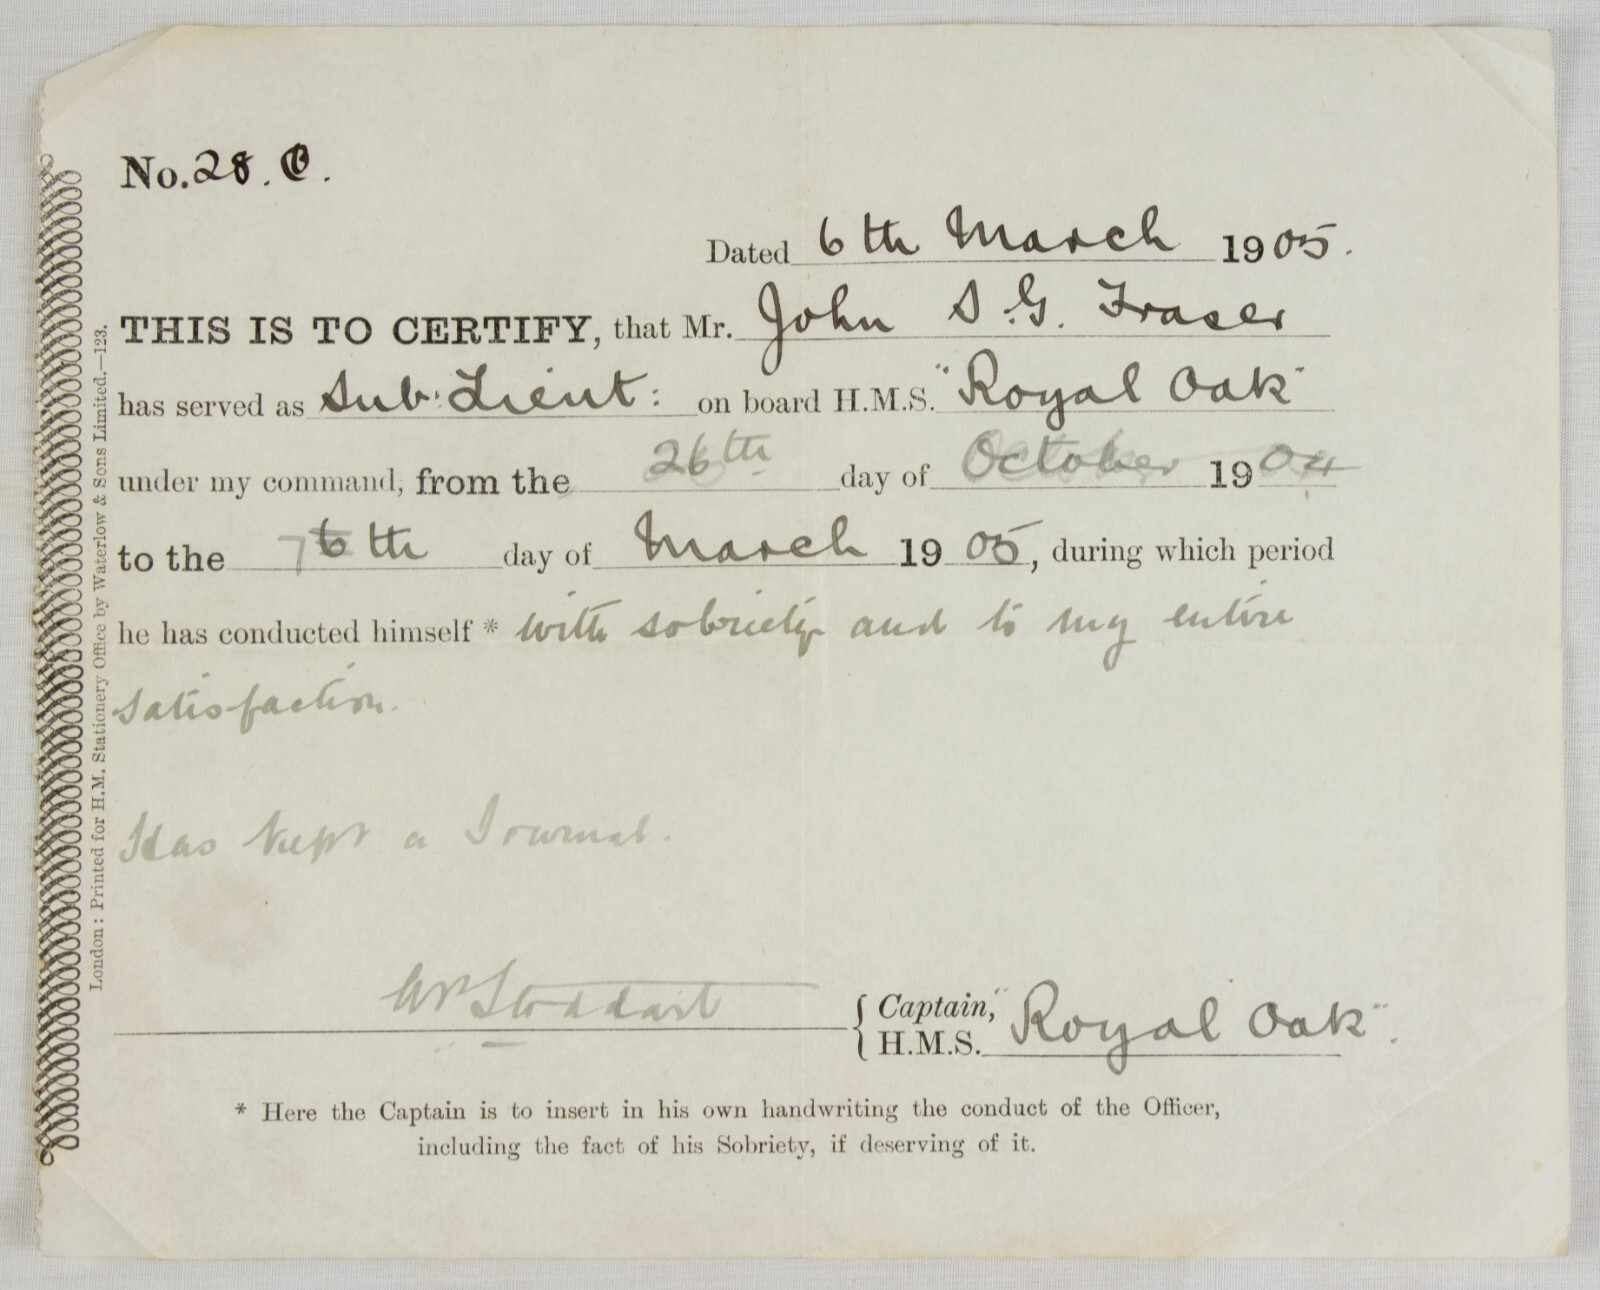 No. 28. C.
Dated 6th March 1905.
THIS IS TO CERTIFY, that Mr. John S. G. Fraser
has served as Sub: Lieut: on board H.M.S. "Royal Oak"
under my command, from the 26th day of October 1904
to the 6th day of March 1905, during which period
he has conducted himself * with sobriety and to my entire
satisfaction.
Has kept a Journal.
Stoddart { Captain,
H.M.S. "Royal Oak".
* Here the Captain is to insert in his own handwriting the conduct of the Officer,
including the fact of his Sobriety, if deserving of it.
London : Printed for H.M. Stationery Office by Waterlow & Sons Limited.—123.